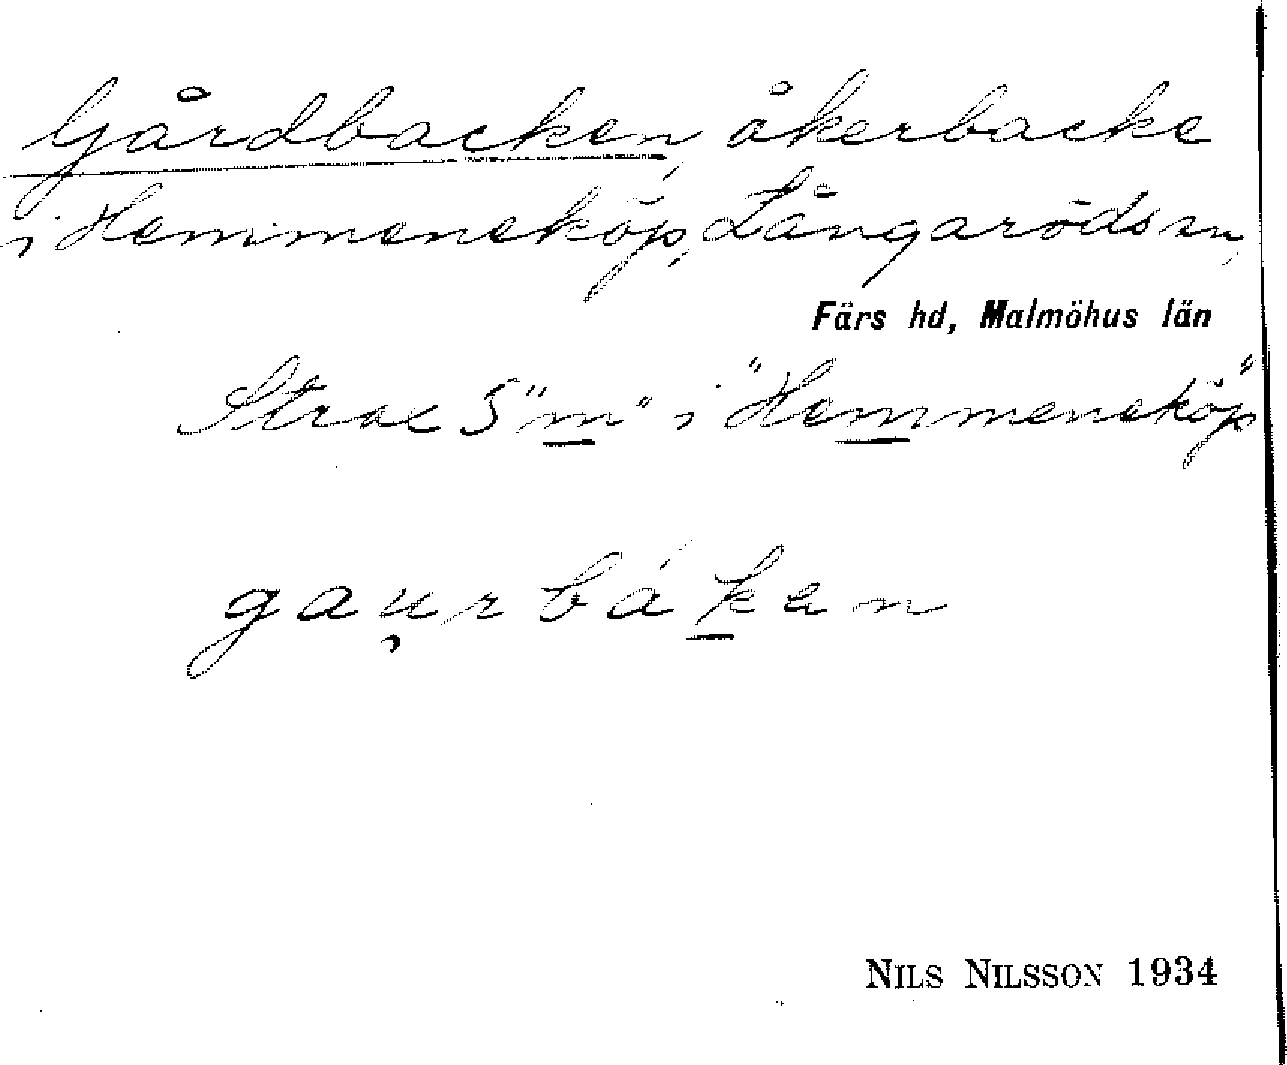 Gårdbacken, åkerbacke
i Hemmeneköp, Långaröds sn,
Färs hd, Malmöhus län
Strax S "m" i "Hemmeneköp"
gau̦rbáken
NILS NILSSON 1934